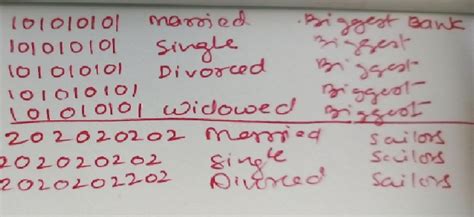 101010101 married Biggest Bank
101010101 Single Biggest
101010101 Divorced Biggest
101010101 Biggest
101010101 widowed Biggest
202020202 married Sailors
202020202 Single Sailors
2020202202 Divorced Sailors